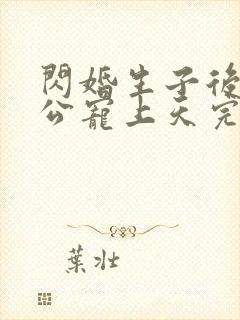 閃婚生子後
公寵上天完
葉壯